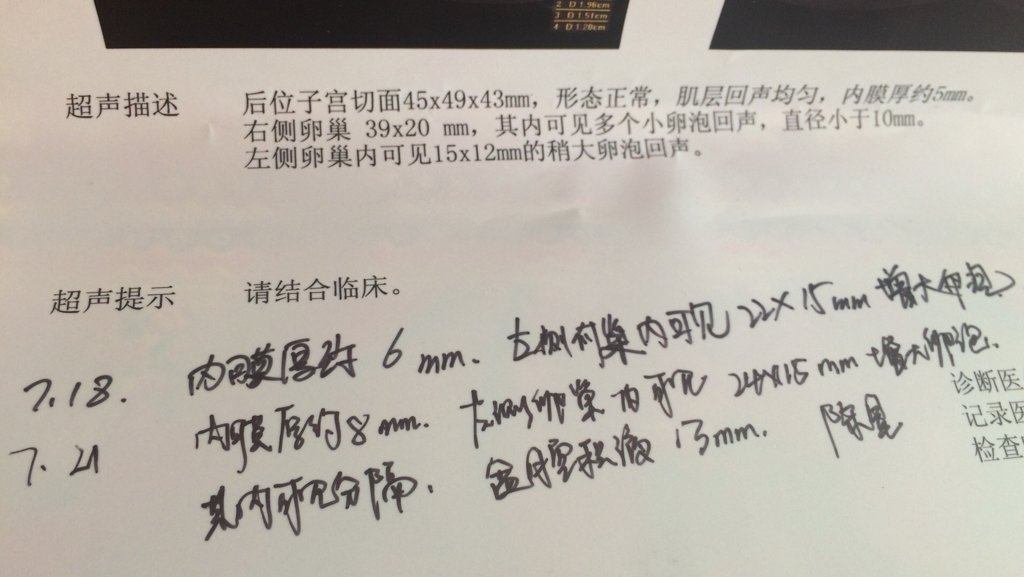 2 D 1.96cm
3 D 1.51cm
4 D 1.20cm
超声描述 后位子宫切面45x49x43mm，形态正常，肌层回声均匀，内膜厚约5mm。
右侧卵巢 39x20 mm，其内可见多个小卵泡回声，直径小于10mm。
左侧卵巢内可见15x12mm的稍大卵泡回声。
超声提示 请结合临床。
7.18. 内膜厚约 6 mm. 左侧卵巢内可见 22×15mm 增大卵泡
7.21 内膜厚约8mm. 左侧卵巢内可见 24×15mm 增大卵泡.
其内可见分隔. 盆腔积液 13mm.
诊断医
记录医
检查